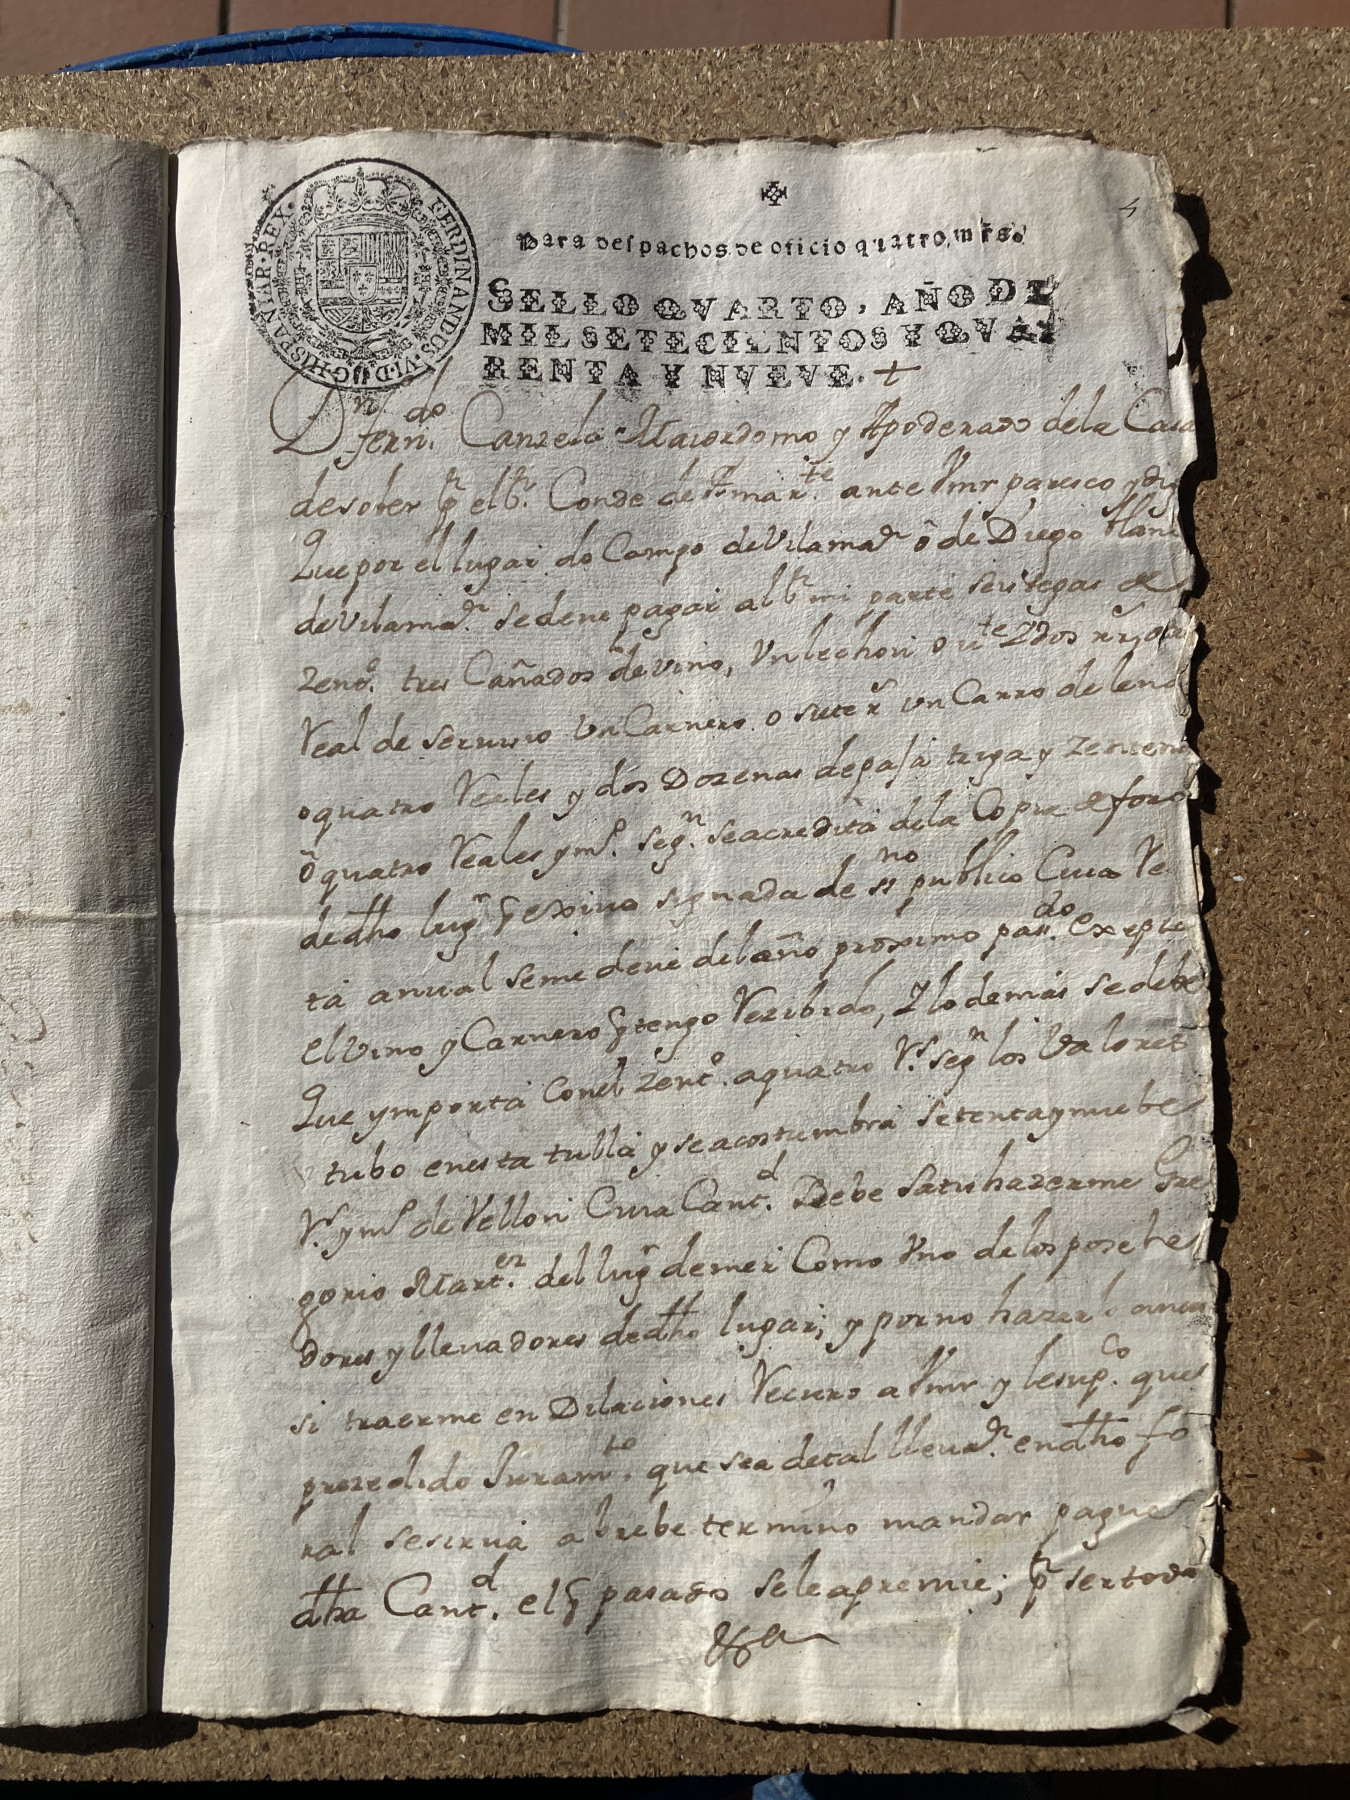 FERDINANDUS·VI·D·G·HISPANIAR·REX·
4
Para despachos de oficio quatro mrs.
SELLO QVARTO, AÑO DE
MIL SETECIENTOS Y QVA
RENTA Y NVEVE. +
Dn. ferndo. Canzela Maiordomo y Apoderado dela Casa
de sober pr el Sr. Conde de Amarte. ante Vmr paresco y di
Que por el lugar do Campo de Vilamar. ô de Diego Blan
de Vilamar. se deve pagar al Sr mi parte seis tegas de
Zento. tres Cañados de vino, Vn lechon o vte y dos rr,
Real de servicio Un Carnero o siete rr un Carro de leña
o quatro Reales y dos Dozenas de paja triga y Zentena
ô quatro Reales y mo. segn. se acredita dela Copia de foro
de dho lugr q exivo signada de ssno publico Cuia Re
ta anual se me deve del año proximo pasdo. exepto
el Vino y Carnero q tengo Rezibido, Y lo demas se debe
Que ymporta con el Zento. a quatro Rs. segn los Valores
tubo en esta tulla y se acostumbra setenta y nuebe
Rs. y mo de Vellon Cuia Cantd. Debe satishazerme Gre
gorio Martez. del lugr de mer Como Vno de los posehe
dores y llevadores de dho lugar; y por no hazerlo an
si traerme en Dilaciones Recurro a Vmr y le supco. que
prezedido Juramto. que sea de tal llevadr. en dho fo
ral se sirva a brebe termino mandar pague
dha Cantd. el q pasado se le apremie; pr ser todo